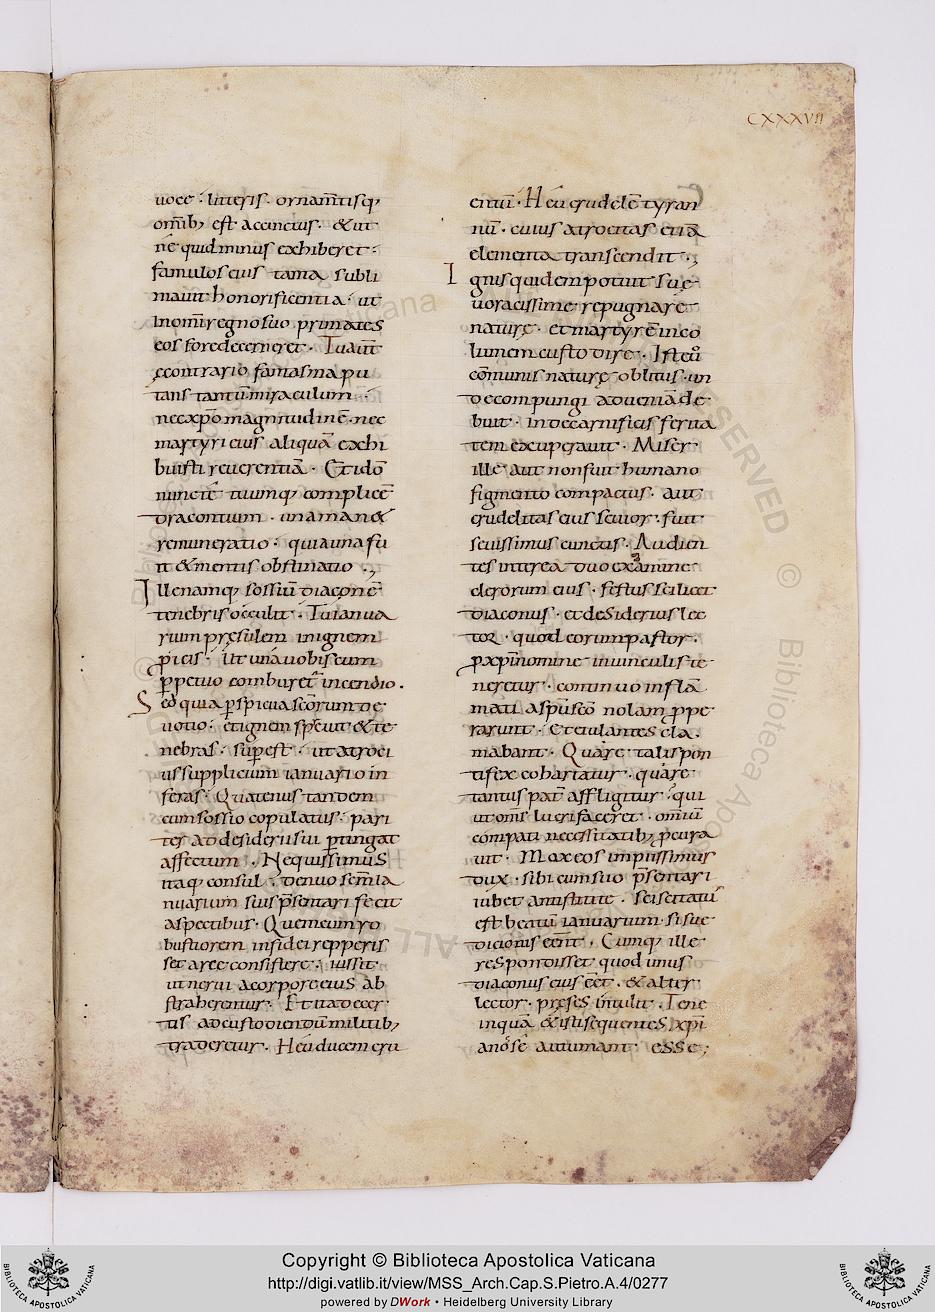 CXXXVII
uoce · litteris · ornam̄tisq;
om̄ib; est accinctus · & ut
ne quid minus exhiberet ·
famulos eius tama subli
mauit honorificentia · ut
in om̄i regno suo primates
eos fore decerneret · Tu aut̄
econtrario fantasma pu
tans tantū miraculum ·
nec xp̄o magnitudinē · nec
martyri eius aliquā exhi
buisti reuerentiā · Et idō
nunc te tuumq; complicē
dracontium · una man&
remuneratio · quia una fu
it & mentis obstinatio ·,
Ille namq; sossiū diaconē
tenebris occulit · Tu ianua
rum presulem in ignem
proicis · Ut una uobiscum
ꝑpetuo combur& incendio .
Sed quia ꝑspicua sc̄orum de
uotio · et ignem spreuit & te
nebras · suꝑest · ut atroci
us supplicium ianuario in
feras · Quatenus tandem
cum sossio copulatus · pari
ter ad desiderii sui ꝑtingat
affectum · Nequissimus
itaq; consul · denuo sem̄ Ia
nuarium suis p̄sentari fecit
aspectibus · Quem cum ro
bustiorem in fidei repperis
set arce consistere · iussit
ut nerui a corpore eius ab
straherentur · Et ita decer
tis ad custodiendū militib;
traderetur · Heu ducem cru
entū · Heu crudelē tyran
nū · cuius atrocitas etiā
elementa transcendit ·,
Ignis quidem potuit sue
uoracissime repugnare
nature · et martyrē inco
lumem custodire · Iste ū
cōmunis nature oblitus · un
de compungi ad ueniā de
buit · inde carnificis ferita
tem exuperauit · Miser
ille aut non fuit humano
figmento compactus · aut
crudelitas eius seuior · fuit
seuissimus cunctis · Audien
tes interea duo ex āmine
clerorum eius · festus scilicet
diaconus · et desiderius lec
tor · quod eorum pastor ·
ꝓ xp̄i nomine in uinculis te
neretur · continuo inflā
mati a sp̄u sc̄o nolam ꝓpe
rarunt · Et eiulantes cla
mabant · Quare talis pon
tifex cohartatur · quare
tantus pat̄ affligitur · qui
ut om̄s lucrifaceret · omīū
compati necessitatib; ꝓcura
uit · Mox eos impiissimus
dux · sibi cum suo p̄sentari
iubet antistite · Sciscitatū
est beatū ianuarium · si sue
dicionis eēnt · Cumq; ille
respondisset quod unus
diaconus eius eēt · & alter
lector · preses intulit · Tene
inquā & isti sequentes xp̄i
anos se autumant esse ;
Copyright © Biblioteca Apostolica Vaticana
http://digi.vatlib.it/view/MSS_Arch.Cap.S.Pietro.A.4/0277
powered by DWork • Heidelberg University Library